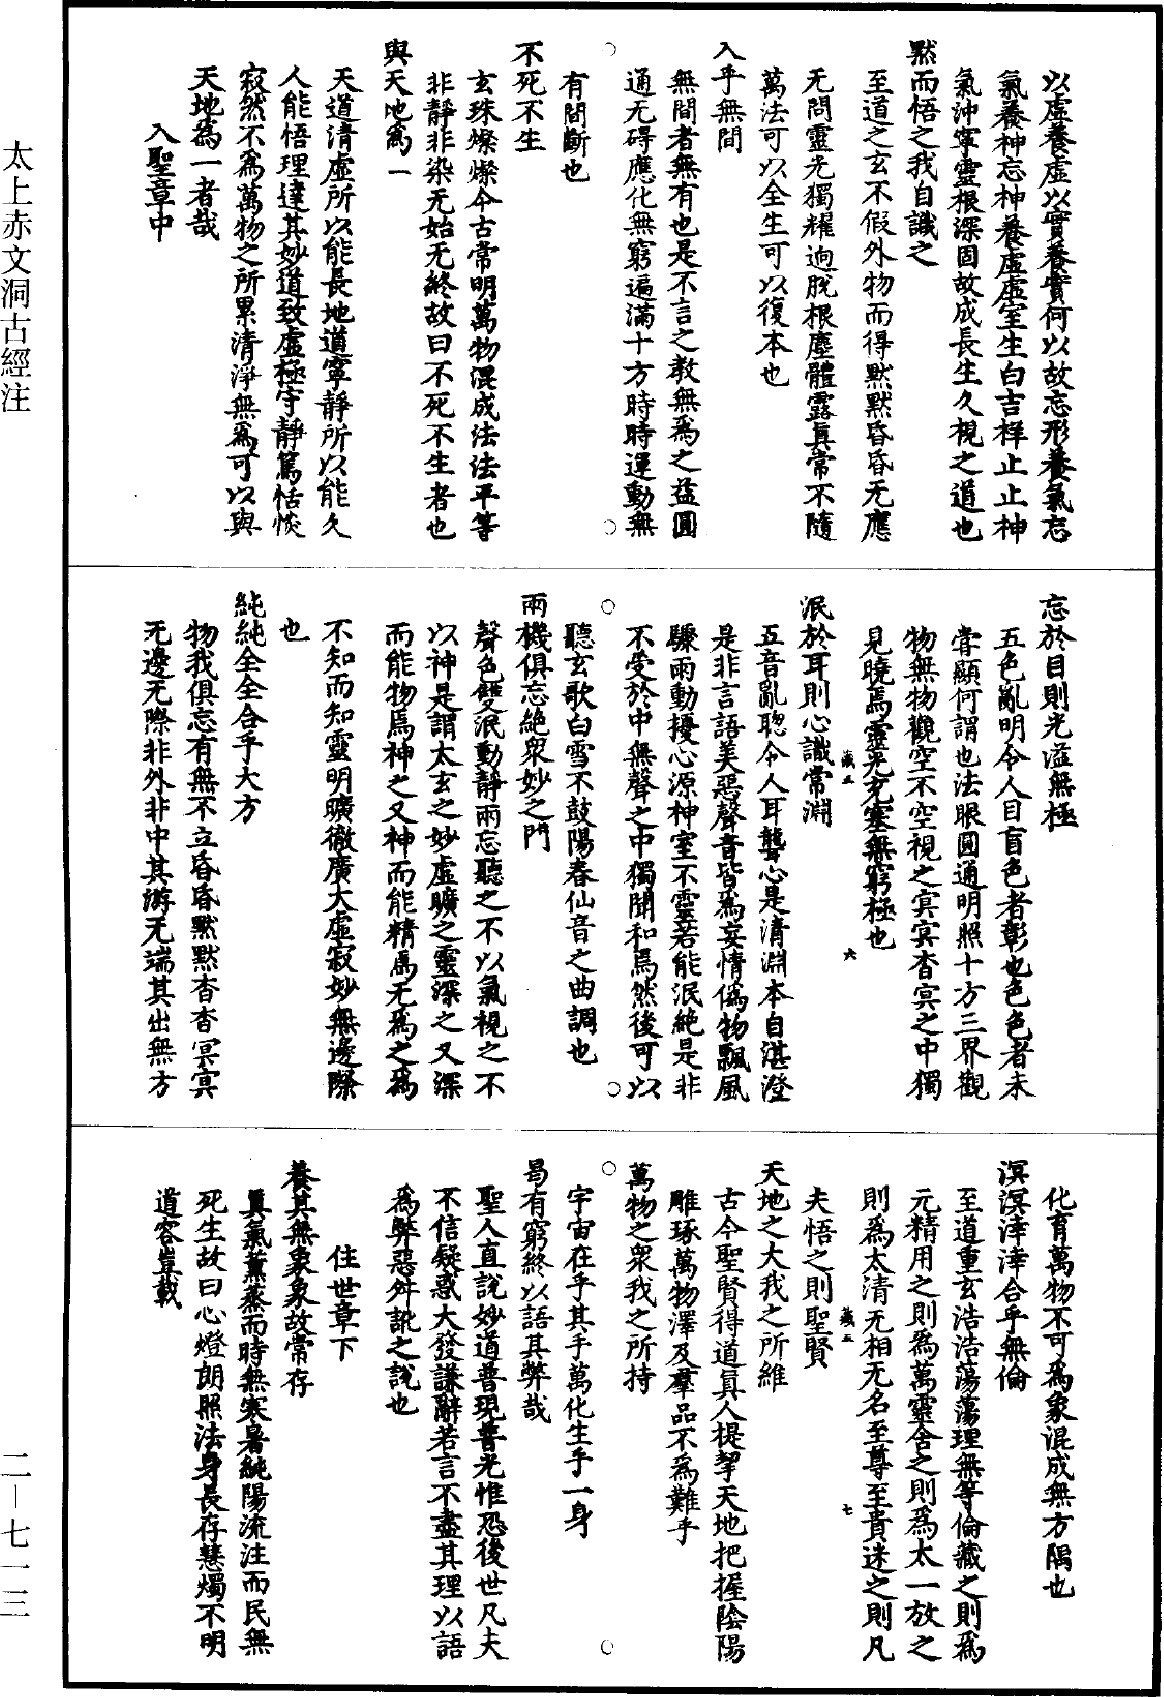 以虛養虛以實養實何以故忘形養氣忘
氣養神忘神養虛虛室生白吉祥止止神
氣沖寧靈根深固故成長生久視之道也
默而悟之我自識之
至道之玄不假外物而得默默昏昏无應
无問靈光獨耀逈脫根塵體露真常不隨
萬法可以全生可以復本也
入乎無間
無間者無有也是不言之教無為之益圓
通无碍應化無窮遍滿十方時時運動無
有間斷也
不死不生
玄珠燦燦今古常明萬物混成法法平等
非靜非染无始无終故曰不死不生者也
與天地為一
天道清虛所以能長地道寧靜所以能久
人能悟理達其妙道致虛極守靜篤恬惔
寂然不為萬物之所累清淨無為可以與
天地為一者哉
入聖章中
忘於目則光溢無極
五色亂明令人目盲色者彰也色色者未
嘗顯何謂也法眼圓通明照十方三界觀
物無物觀空不空視之㝠㝠杳㝠之中獨
見曉焉靈光充塞無窮極也
泯於耳則心識常淵
五音亂聰令人耳聾心是清淵本自湛澄
是非言語美惡聲音皆為妄情偽物飄風
驟雨動擾心源神室不靈若能泯絶是非
不受於中無聲之中獨聞和焉然後可以
聽玄歌白雪不鼓陽春仙音之曲調也
兩機俱忘絶衆妙之門
聲色雙泯動靜兩忘聽之不以氣視之不
以神是謂太玄之妙虛曠之靈深之又深
而能物焉神之又神而能精焉无為之為
不知而知靈明曠徹廣大虛寂妙無邊際
也
純純全全合乎大方
物我俱忘有無不立昏昏默默杳杳冥㝠
无邊无際非外非中其游无端其出無方
化育萬物不可為象混成無方隅也
溟溟涬涬合乎無倫
至道重玄浩浩蕩蕩理無等倫藏之則為
元精用之則為萬靈含之則為太一放之
則為太清无相无名至尊至貴迷之則凡
夫悟之則聖賢
天地之大我之所維
古今聖賢得道真人提挈天地把握陰陽
雕琢萬物澤及羣品不為難乎
萬物之衆我之所持
宇宙在乎其手萬化生乎一身
曷有窮終以語其弊哉
聖人直說妙道普現普光惟恐後世凡夫
不信疑惑大發謙辭若言不盡其理以語
為弊惡舛訛之說也
住世章下
養其無象象故常存
真氣薰蒸而時無寒暑純陽流注而民無
死生故曰心燈朗照法身長存慧燭不明
道容豈載
太上赤文洞古經注
二—七一三